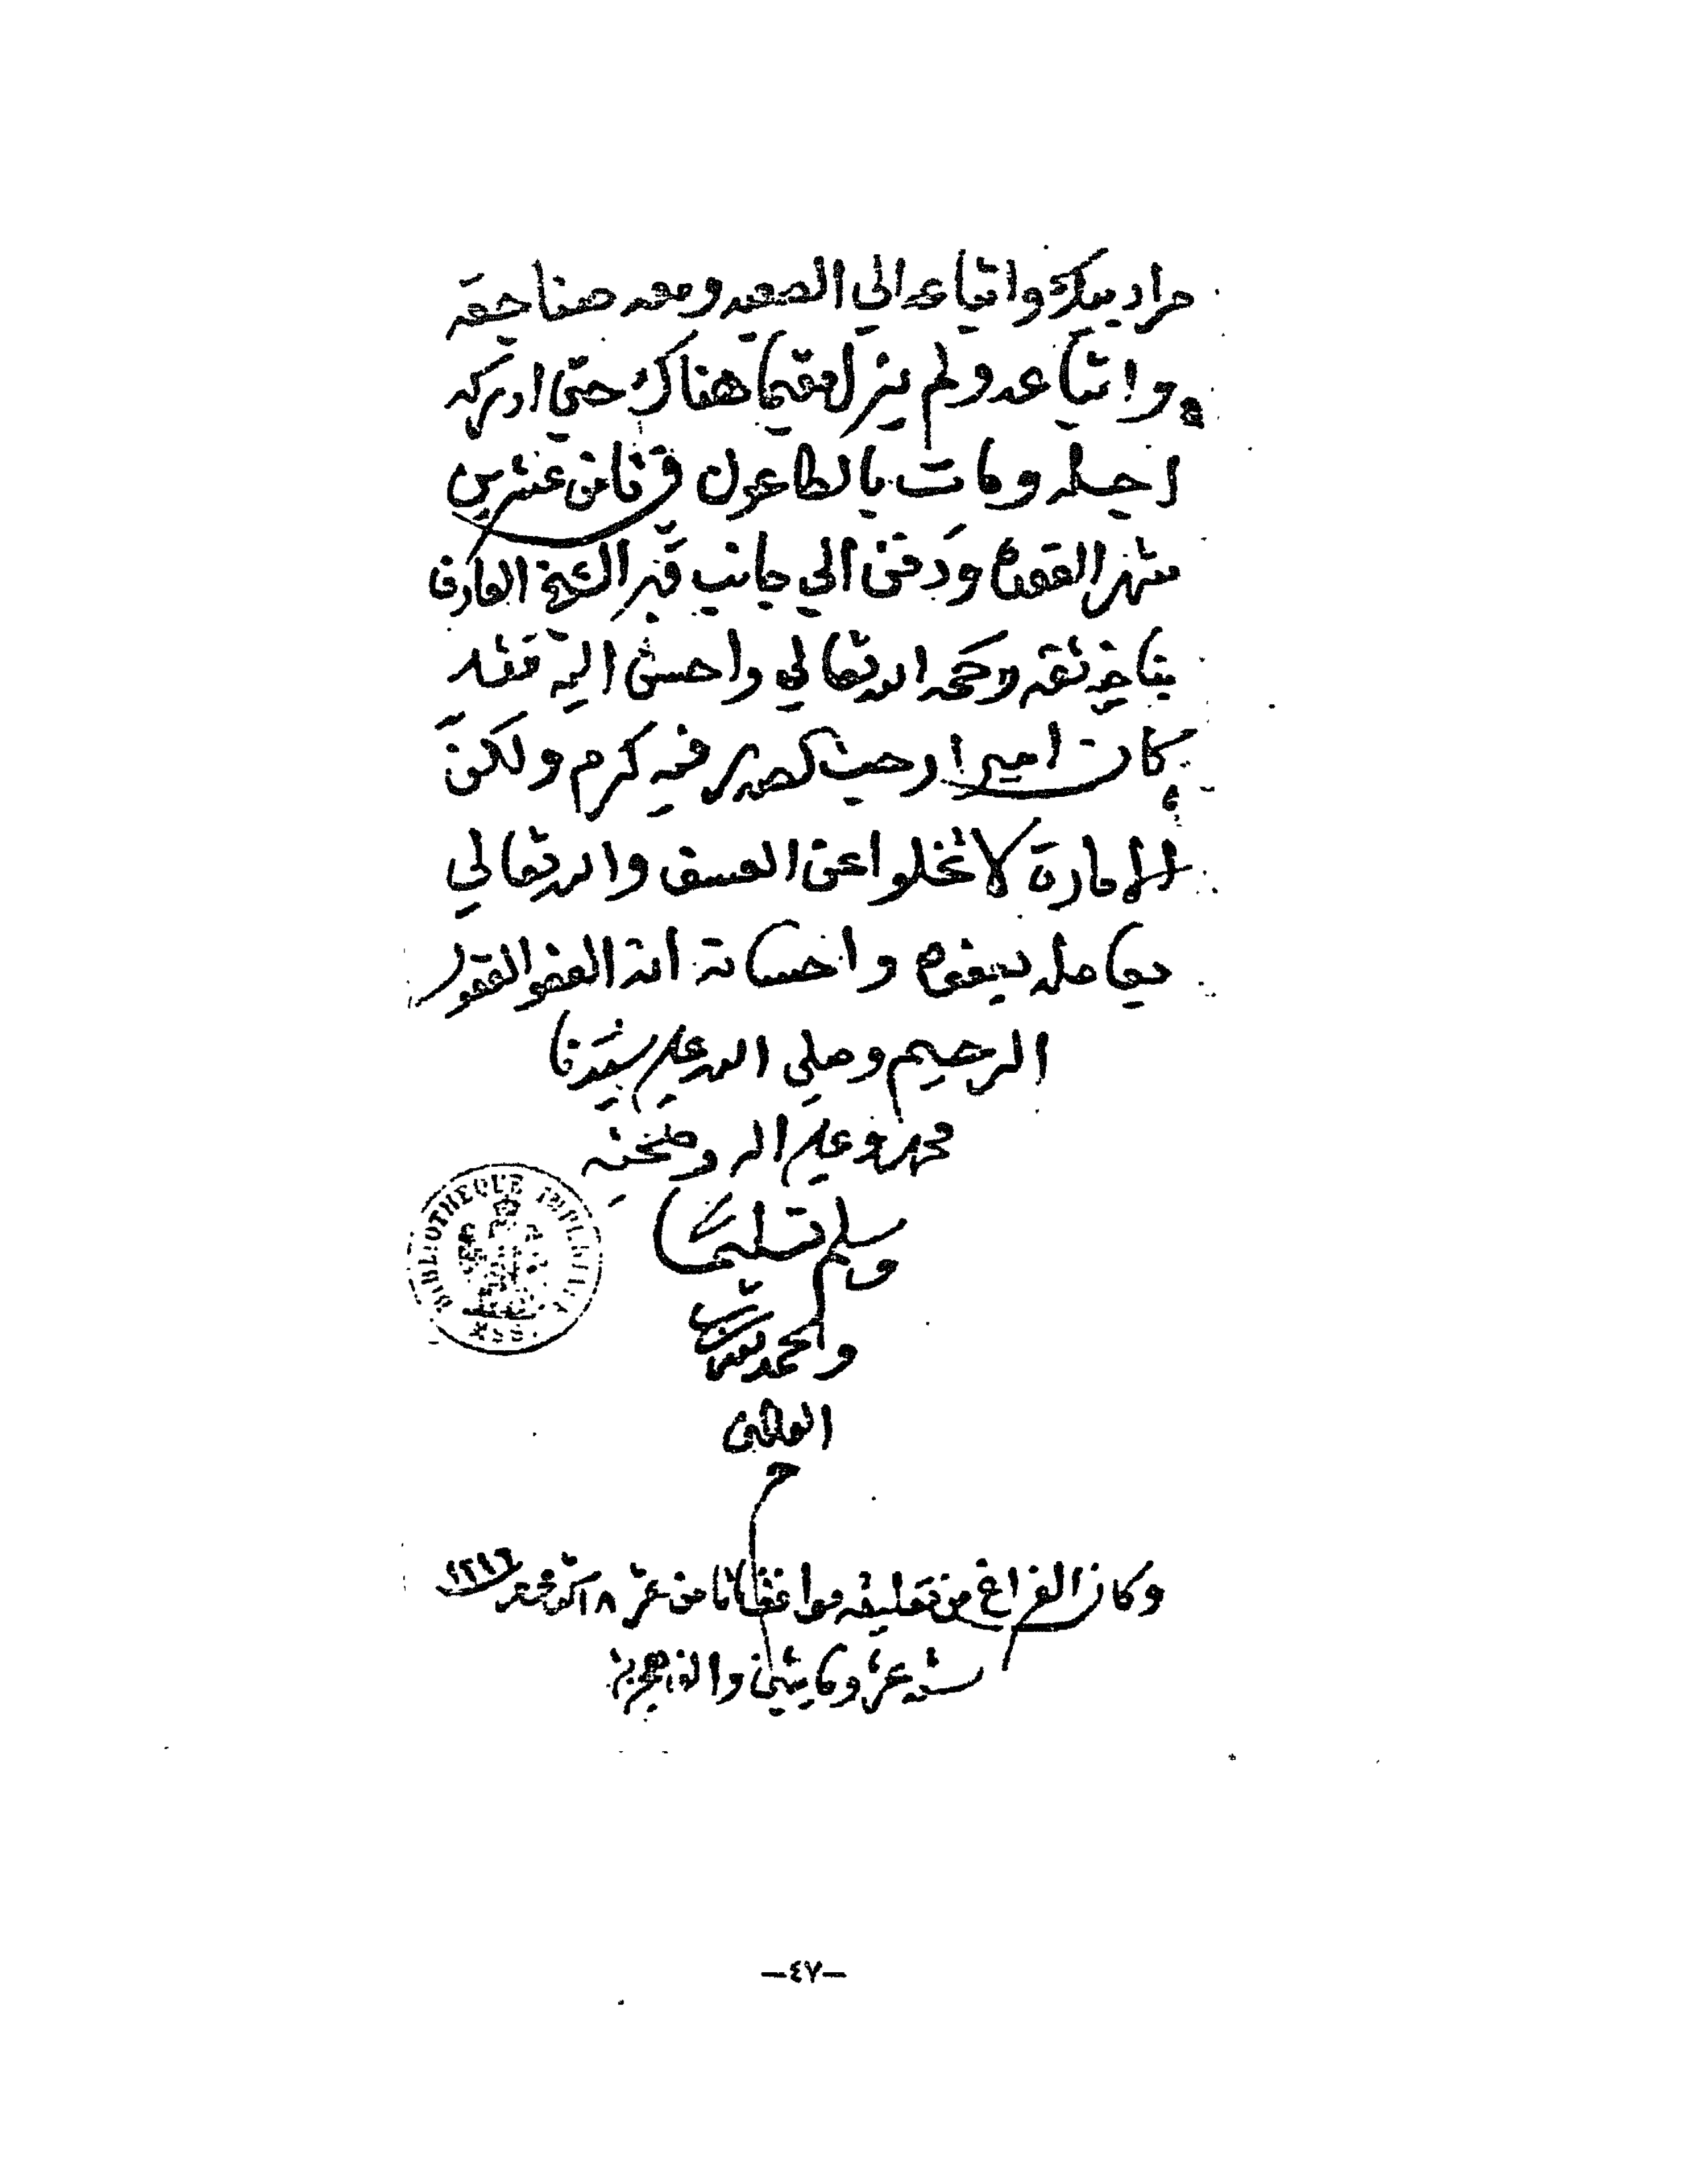 مراد بيك واتباعه الي الصعيد ومعه صناجقه
واتباعه ولم يزل مقيما هناك حتي ادركه
اجله ومات بالطاعون في ثامن عشرين
شهر القعده ودفن الي جانب قبر الشيخ العارف
رحمه الله تعالي واحسن اليه فقد
كان اميرا رحيب الصدر فيه كرم ولكن
الامارة لا تخلوا عن العسف والله تعالي
يعامله بعفوه واحسانه انه العفو الغفور
الرحيم وصلي الله علي سيدنا
محمد وعلي اله وصحبه
وسلم تسليما
والحمد لله رب
العالمين
م
وكان الفراغ من تعليقه موافقا ثامن عشر ١٨ سنة ١٢١٦
ستة عشر ومايتين والف هجرية
BIBLIOTHEQUE IMPERIALE
MSS.
—٤٧—